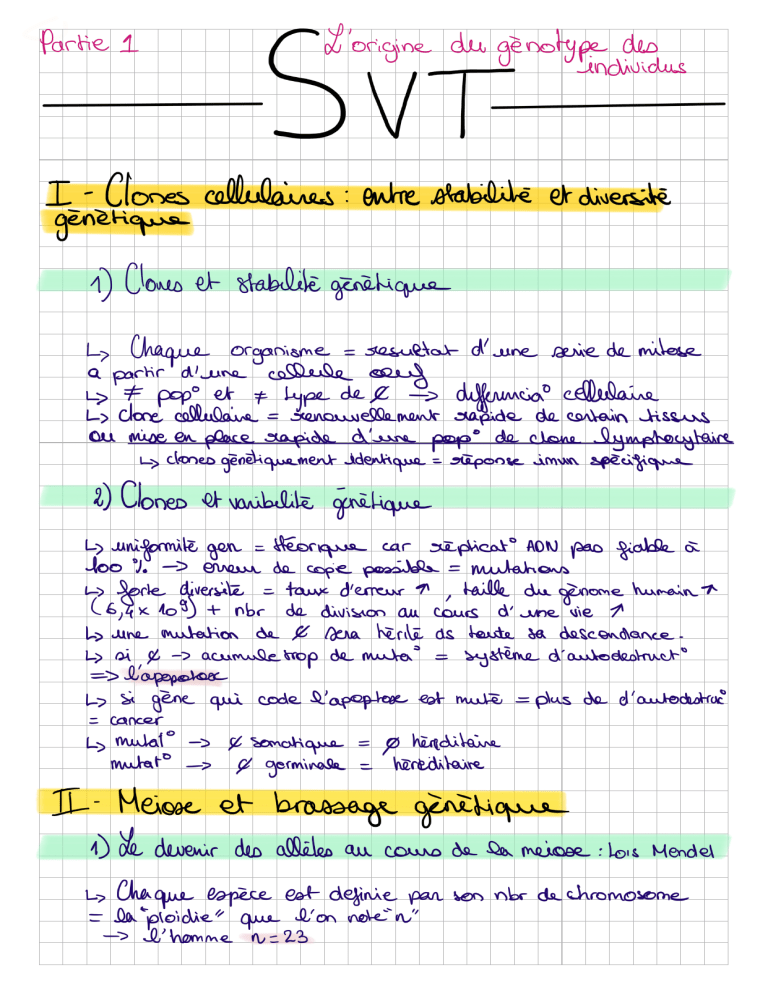 Partie 1
L'origine du génotype des
individus
SVT
I - Clones cellulaires : entre stabilité et diversité
génétique
1) Clones et stabilité génétique
↳ Chaque organisme = resultat d'une serie de mitose
a partir d'une cellule oeuf
↳ ≠ pop° et ≠ type de ₵ → differencia° cellulaire
↳ clone cellulaire = renouvellement rapide de certain tissus
ou mise en place rapide d'une pop° de clone lymphocytaire
↳ clones génétiquement identique = réponse imun spécifique
2) Clones et varibilité génétique
↳ uniformité gen = théorique car réplicat° ADN pas fiable à
100 % → erreur de copie possible = mutations
↳ forte diversité = taux d'erreur ↗, taille du génome humain ↗
(6,4 x 10⁹) + nbr de division au cours d'une vie ↗
↳ une mutation de ₵ sera hérité ds toute sa descendance.
↳ si ₵ → acumule trop de muta° = système d'autodestruct°
=> l'apopotose
↳ si gène qui code l'apoptose est muté = plus de d'autodestruc°
= cancer
↳ mutat° → ₵ somatique = ∅ héréditaire
mutat° → ₵ germinale = héréditaire
II - Meiose et brassage génétique
1) Le devenir des allèles au cours de la meiose : Lois Mendel
↳ Chaque espèce est definie par son nbr de chromosome
= la "ploidie" que l'on note "n"
→ l'homme n = 23